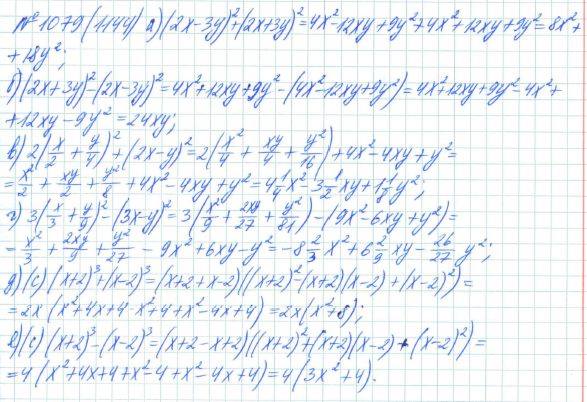 № 1079 (1144) а) (2x-3y)²+(2x+3y)²=4x²-12xy+9y²+4x²+12xy+9y²=8x²+
+18y²;
б) (2x+3y)²-(2x-3y)²=4x²+12xy+9y²-(4x²-12xy+9y²)=4x²+12xy+9y²-4x²+
+12xy-9y²=24xy;
в) 2(x/2+y/4)²+(2x-y)²=2(x²/4+xy/4+y²/16)+4x²-4xy+y²=
=x²/2+xy/2+y²/8+4x²-4xy+y²=4 1/2x²-3 1/2xy+1 1/8y²;
г) 3(x/3+y/9)²-(3x-y)²=3(x²/9+2xy/27+y²/81)-(9x²-6xy+y²)=
=x²/3+2xy/9+y²/27-9x²+6xy-y²=-8 2/3x²+6 2/9xy-26/27y²;
д) (с) (x+2)³+(x-2)³=(x+2+x-2)((x+2)²-(x+2)(x-2)+(x-2)²)=
=2x(x²+4x+4-x²+4+x²-4x+4)=2x(x²+8);
е) (с) (x+2)³-(x-2)³=(x+2-x+2)((x+2)²+(x+2)(x-2)+(x-2)²)=
=4(x²+4x+4+x²-4+x²-4x+4)=4(3x²+4).